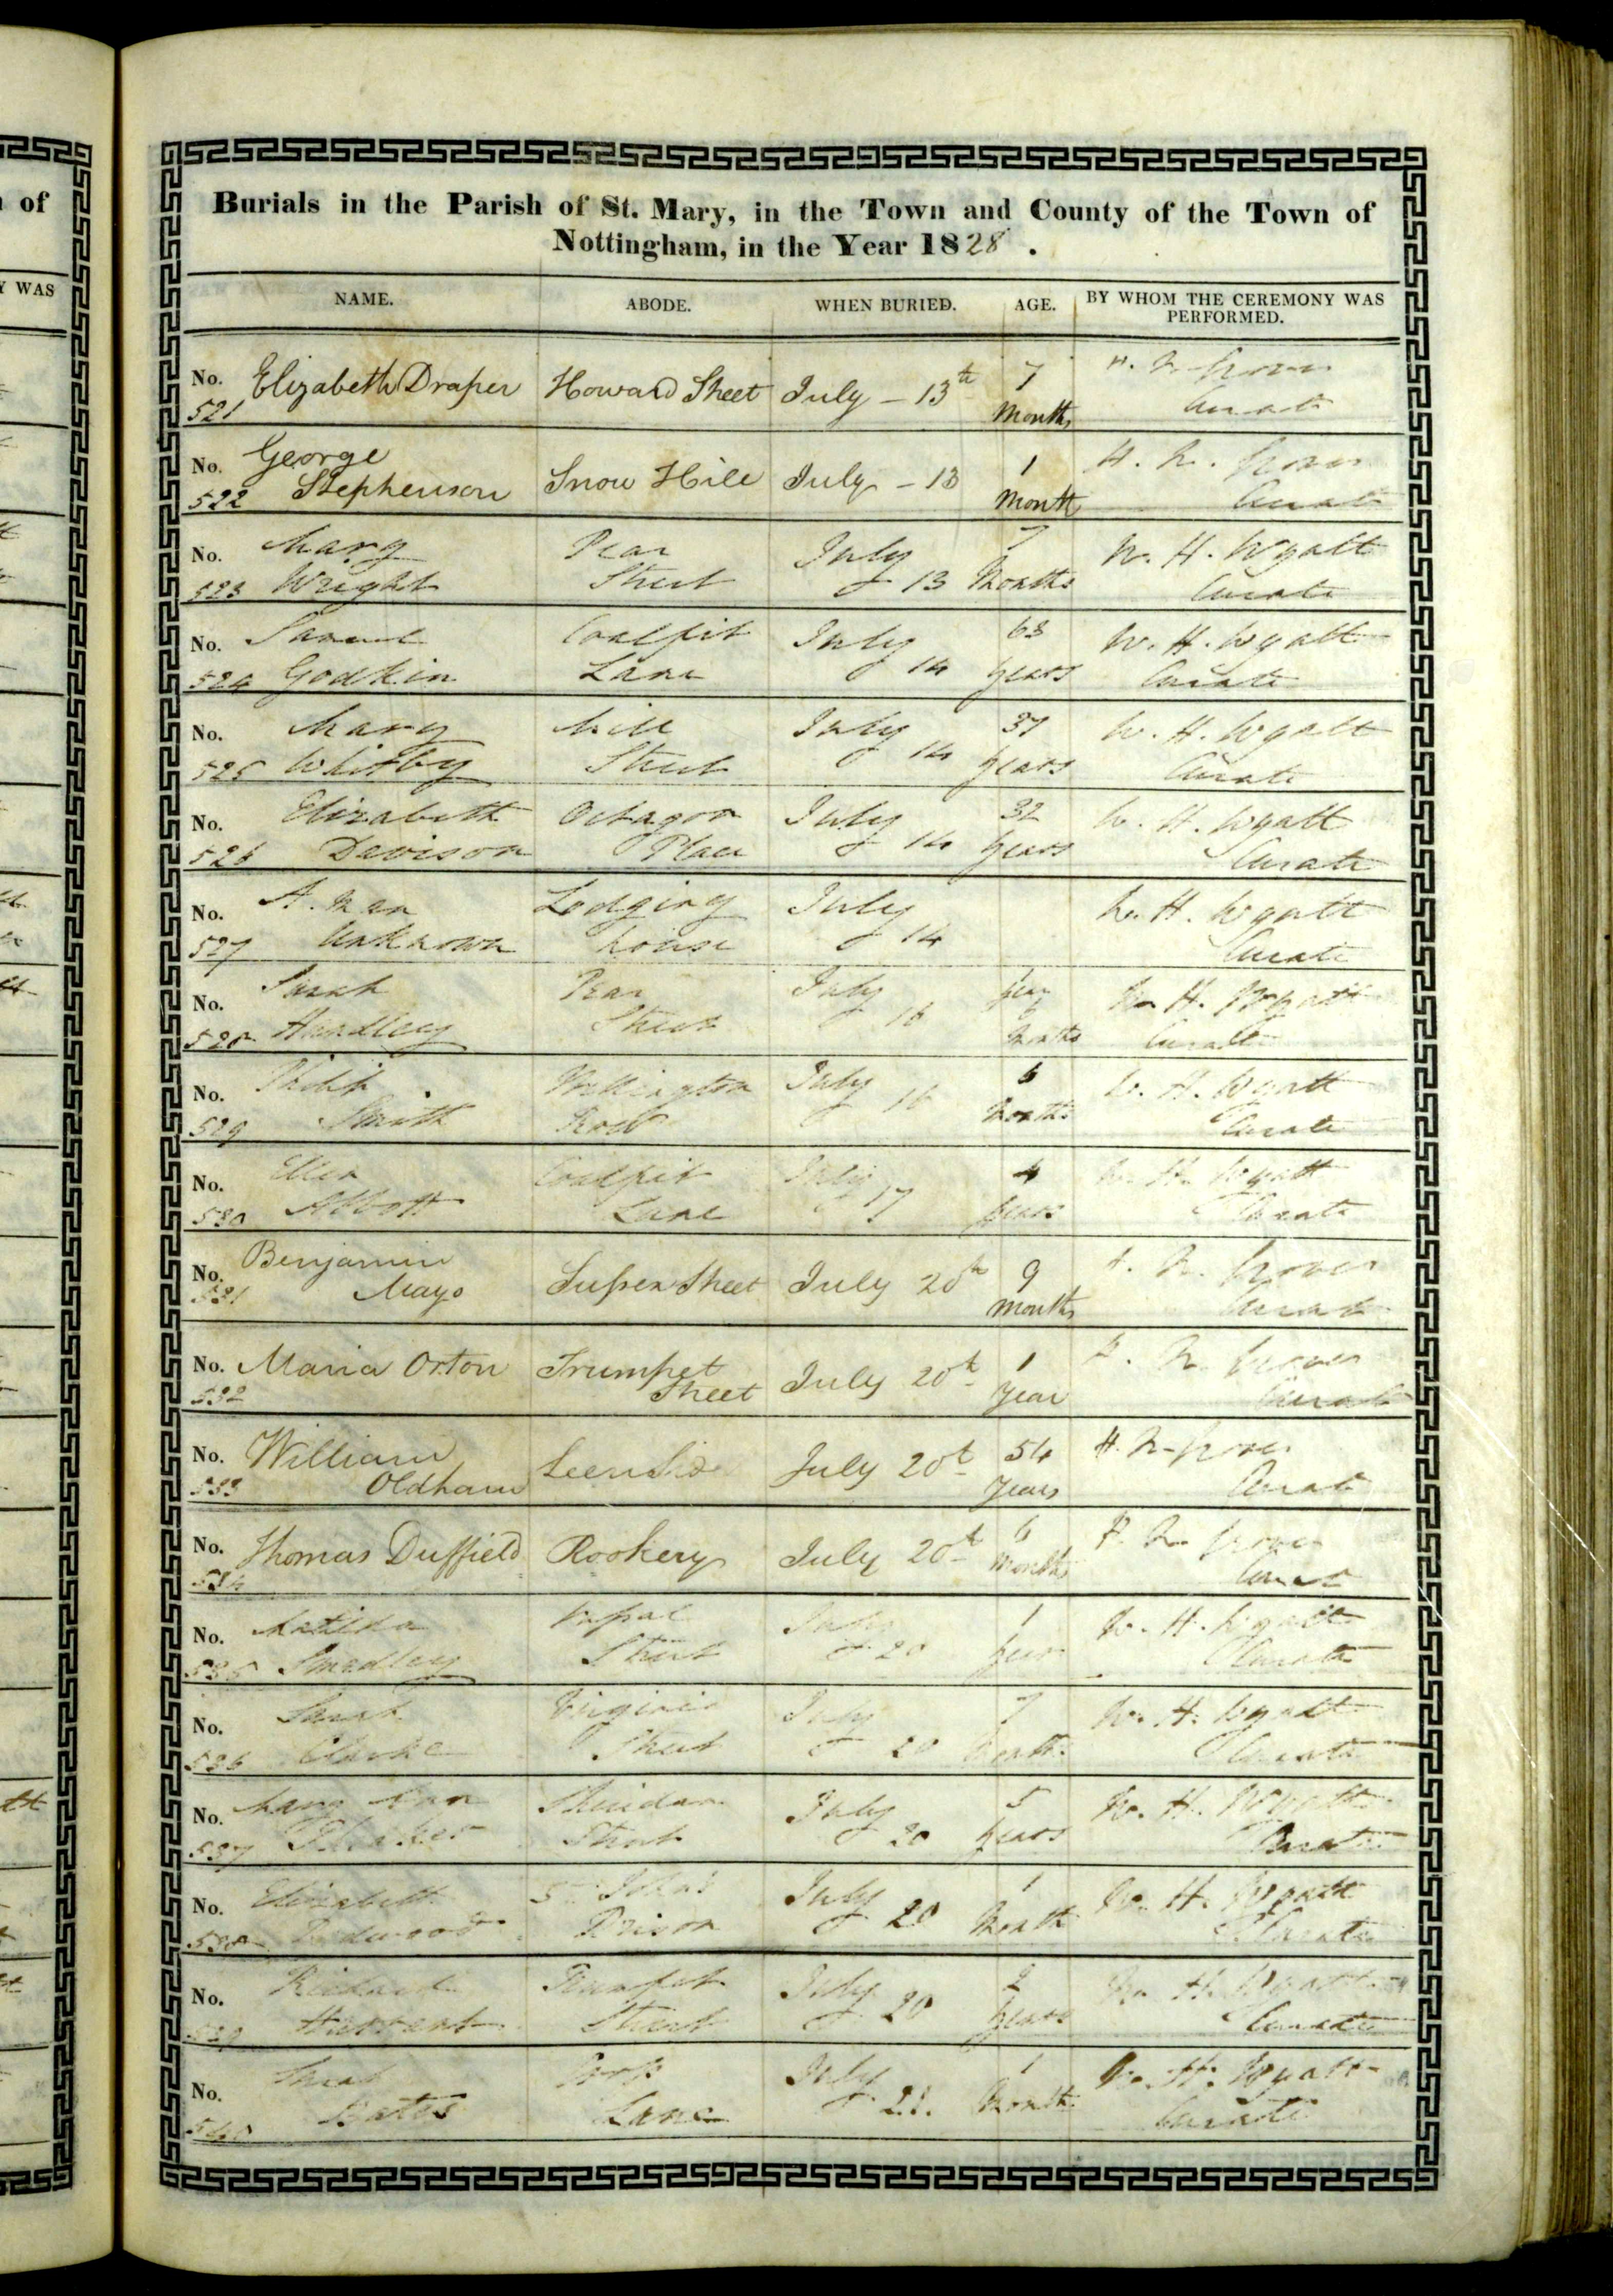 of
Y WAS
Burials in the Parish of St. Mary, in the Town and County of the Town of
Nottingham, in the Year 1828.
NAME. ABODE. WHEN BURIED. AGE. BY WHOM THE CEREMONY WAS PERFORMED.
No. 521 Elizabeth Draper Howard Street July - 13th 7 Months Curate
No. 522 George Stephenson Snow Hill July - 13 1 Month Curate
No. 523 Mary Wright Pear Street July 13 7 Months W. H. Wyatt Curate
No. 524 Samuel Godkin Coalpit Lane July 14 63 Years W. H. Wyatt Curate
No. 525 Mary Whitby Mill Street July 14 37 Years W. H. Wyatt Curate
No. 526 Elizabeth Davison Octagon Place July 14 32 Years W. H. Wyatt Curate
No. 527 A Man Unknown Lodging house July 14 W. H. Wyatt Curate
No. 528 Sarah Handley Pear Street July 16 Year 6 Months W. H. Wyatt Curate
No. 529 Philip Smith July 16 Months W. H. Wyatt Curate
No. 530 Ellen Abbott Coalpit Lane July 17 4 Years W. H. Wyatt Curate
No. 531 Benjamin Mayo Sussex Street July 20th 9 Months Curate
No. 532 Maria Orton Trumpet Street July 20th 1 Year Curate
No. 533 William Oldham Leen Side July 20th 54 Years Curate
No. 534 Thomas Duffield Rookery July 20th 6 Months Curate
No. 535 Matilda Smedley Street July 20 1 Year W. H. Wyatt Curate
No. 536 Sarah Clarke Virginia Street July 20 7 Months W. H. Wyatt Curate
No. 537 Mary Ann Sheridan Street July 20 5 Years W. H. Wyatt Curate
No. 538 Elizabeth St John's Prison July 20 1 Month W. H. Wyatt Curate
No. 539 Richard Trumpet Street July 20 2 Years W. H. Wyatt Curate
No. 540 Sarah Bates Lane July 21. 1 Month W. H. Wyatt Curate